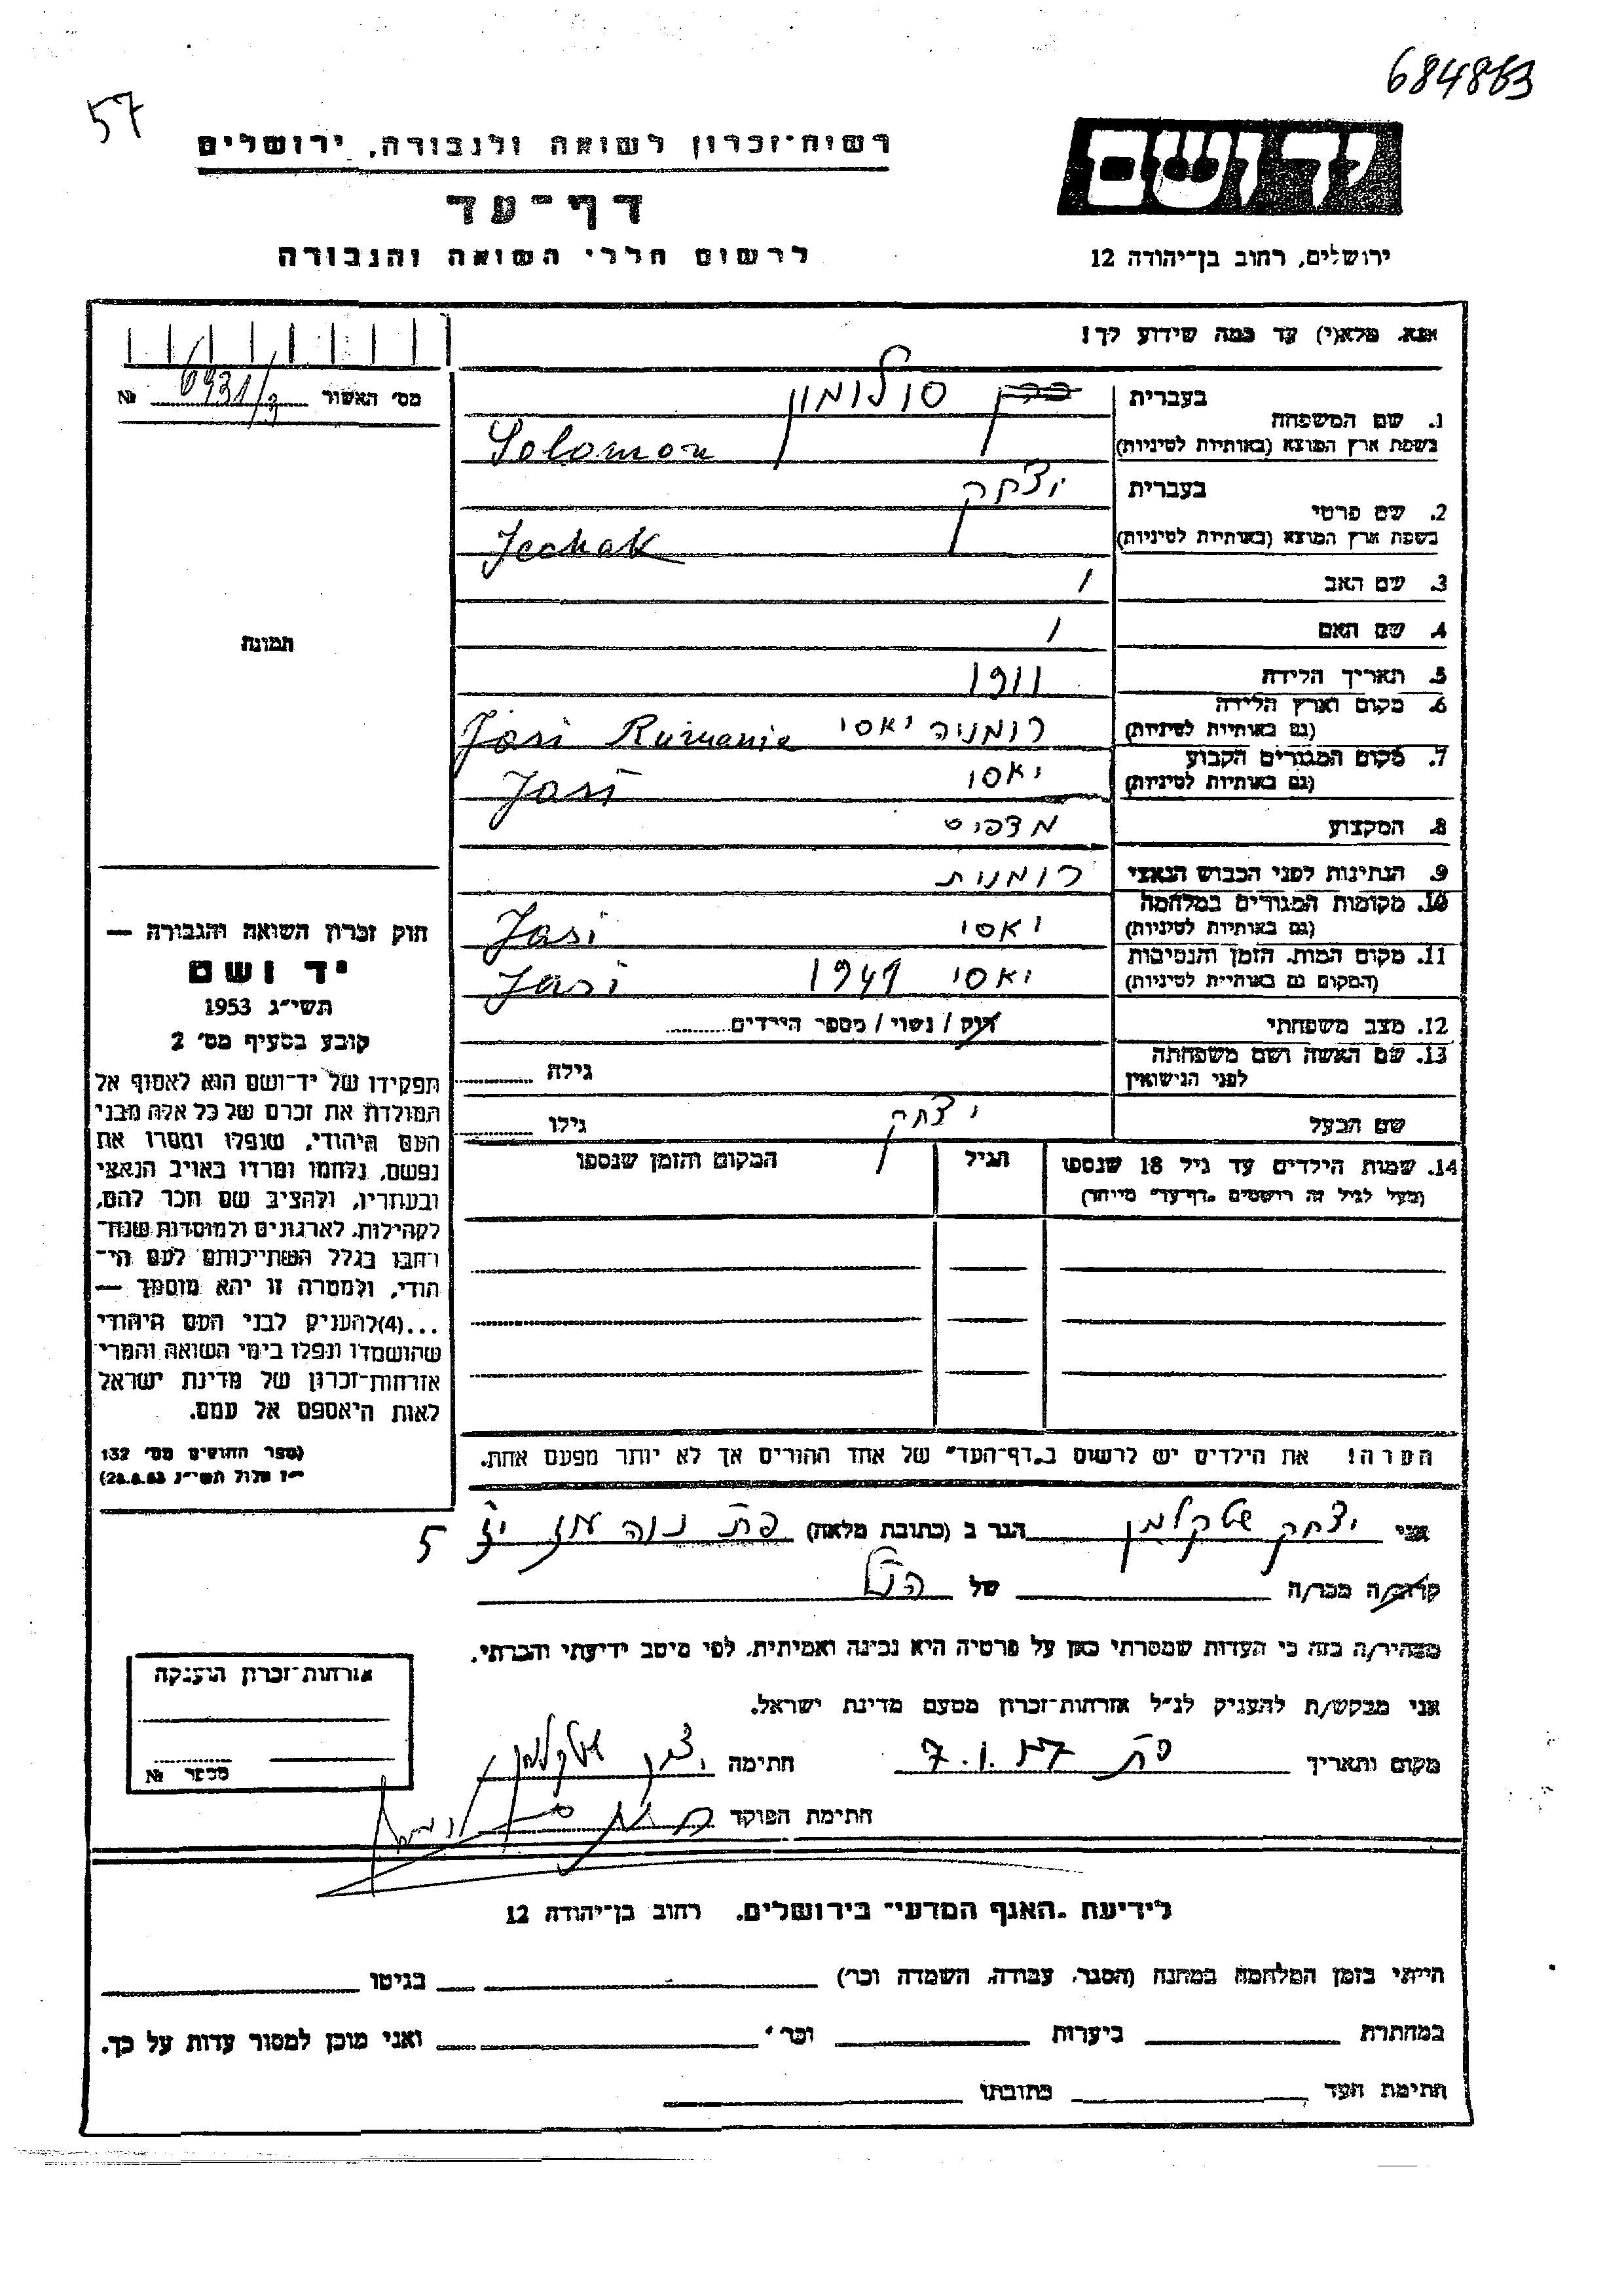 684863
57
רשות־זכרון לשואה ולגבורה, ירושלים
יד ושם
דף־עד
לרשום חללי השואה והגבורה
ירושלים, רחוב בן־יהודה 12
אנא, מלא(י) עד כמה שידוע לך!
מס׳ האשור 6931/3 №
1. שם המשפחה בעברית סולומון
בשפת ארץ המוצא (באותיות לטיניות) Solomon
2. שם פרטי בעברית יצחק
בשפת ארץ המוצא (באותיות לטיניות) Jechak
3. שם האב /
4. שם האם /
תמונה
5. תאריך הלידה 1911
6. מקום וארץ הלידה
(גם באותיות לטיניות) רומניה יאסי Jasi Rumanie
7. מקום המגורים הקבוע
(גם באותיות לטיניות) יאסי Jasi
8. המקצוע
9. הנתינות לפני הכבוש הנאצי רומנית
10. מקומות המגורים במלחמה
(גם באותיות לטיניות) יאסי Jasi
11. מקום המות, הזמן והנסיבות
(המקום גם באותיות לטיניות) יאסי 1941 Jasi
12. מצב משפחתי רווק / נשוי / מספר הילדים
13. שם האשה ושם משפחתה
לפני הנישואין גילה
שם הבעל יצחק גילו
14. שמות הילדים עד גיל 18 שנספו הגיל המקום והזמן שנספו
(מעל לגיל זה רושמים „דף־עד״ מיוחד)
הערה! את הילדים יש לרשום ב„דף־העד״ של אחד ההורים אך לא יותר מפעם אחת.
חוק זכרון השואה והגבורה —
יד ושם
תשי״ג 1953
קובע בסעיף מס׳ 2
תפקידו של יד־ושם הוא לאסוף אל
המולדת את זכרם של כל אלה מבני
העם היהודי, שנפלו ומסרו את
נפשם, נלחמו ומרדו באויב הנאצי
ובעוזריו, ולהציב שם וזכר להם,
לקהילות, לארגונים ולמוסדות שנח־
רחבו בגלל השתייכותם לעם הי־
הודי, ולמטרה זו יהא מוסמך —
...(4)להעניק לבני העם היהודי
שהושמדו ונפלו בימי השואה והמרי
אזרחות־זכרון של מדינת ישראל
לאות היאספם אל עמם.
(ספר החוקים מס׳ 132
י״ז אלול תשי״ג 28.8.53)
אני יצחק הגר ב (כתובת מלאה) פת נוה עוז 5
קרוב/ה מכר/ה של הנ״ל
מצהיר/ה בזה כי העדות שמסרתי כאן על פרטיה היא נכונה ואמיתית, לפי מיטב ידיעתי והכרתי.
אני מבקש/ת להעניק לנ״ל אזרחות־זכרון מטעם מדינת ישראל.
מקום ותאריך פת חתימה
חתימת הפוקד
אזרחות־זכרון הוענקה
מספר №
לידיעת „האגף המדעי״ בירושלים, רחוב בן־יהודה 12
הייתי בזמן המלחמה במחנה (הסגר, עבודה, השמדה וכר׳) בגיטו
במחתרת ביערות וכר׳ ואני מוכן למסור עדות על כך.
חתימת העד כתובתו